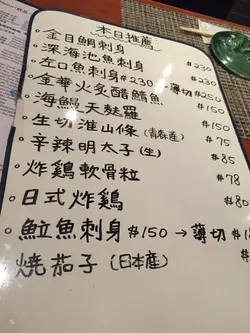 本日推薦
金目鯛刺身 $230
深海池魚刺身 $230
左口魚刺身 $230 → 薄切 $250
金華火炙醋鯖魚 $
海鰻天麩羅 $78
生切淮山條(青森産) $75
辛辣明太子(生) $85
炸鷄軟骨粒 $
日式炸鷄 $
魚立魚刺身 $150 → 薄切 $
燒茄子(日本産) $